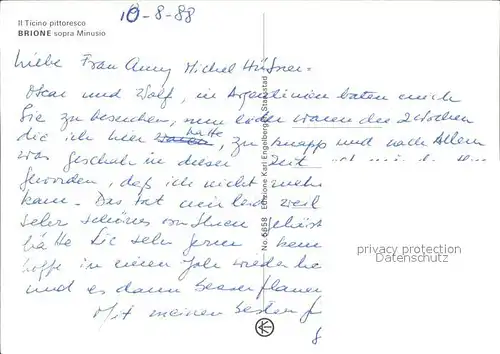 Il Ticino pittoresco
BRIONE sopra Minusio
10-8-88
Liebe Frau Amy Michel Hüfner =
Oscar und Wolf, in Argentinien baten mich
Sie zu besuchen, nun leider waren die 2 Wochen
die ich hier hatte, zu knapp und nach Allem
was geschah in dieser Zeit
geworden, daß ich nicht mehr
kam. Das tat mir leid weil
sehr schönes von Ihnen gehört
hätte Sie sehr gerne kenn
hoffe in einem Jahr wieder hie
und es dann besser planen
Mit meinen besten
No. 6658 Edizione Karl Engelberger, Stansstad
privacy protection
Datenschutz